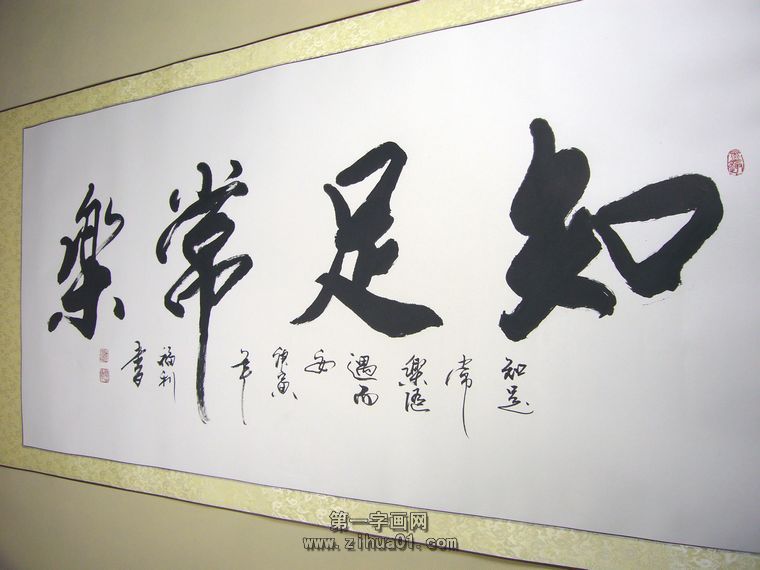 知足常樂
知足
常
樂隨
遇而
安
庚寅
年
福利
書
第一字画网
www.zihua01.com